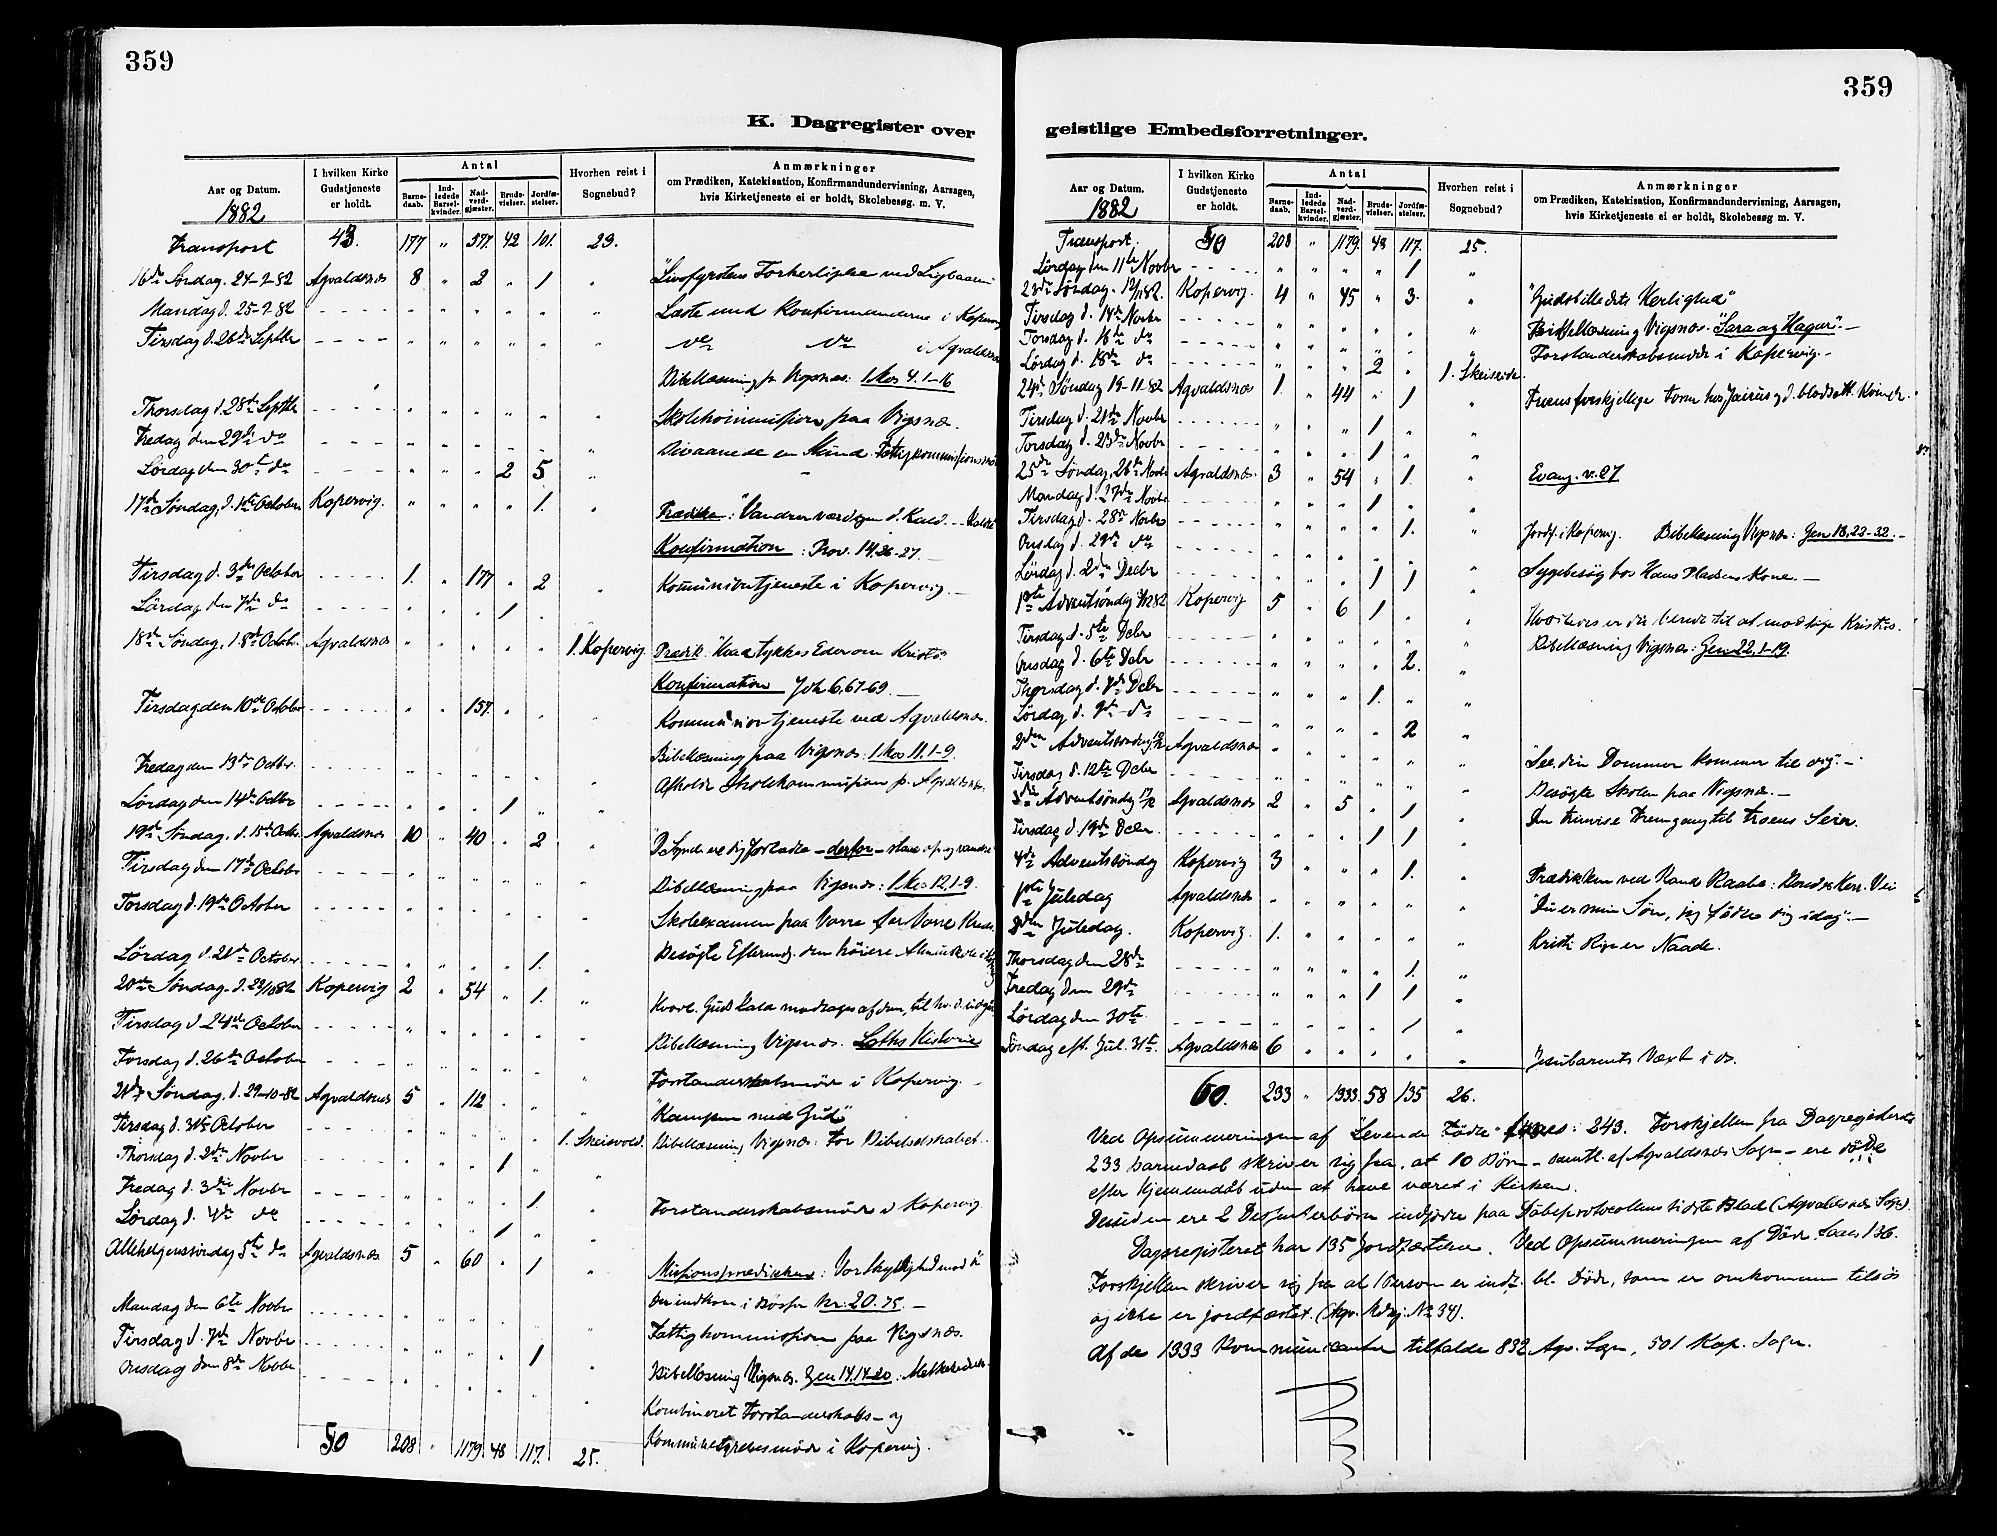 359
K. Dagregister over
Aar og Datum.
1882
I hvilken Kirke Gudstjeneste er holdt.
Antal
Barnedaab. Indledede Barselkvinder. Nadverdgjæster. Brudevielser. Jordfæstelser.
Hvorhen reist i Sognebud?
Anmærkninger
om Prædiken, Katekisation, Konfirmandundervisning, Aarsagen,
hvis Kirketjeneste ei er holdt, Skolebesøg. m. V.
Transport 43 177 " 577. 42 101. 23.
16de Søndag. 24-9-82 Agvaldsnæs 8 " 2 " 1 "
Mandag d. 25-9-82 Læste med Konfirmanderne i Kopervig
Tirsdag d. 26de Septbr do do i Agvaldsnæs
Bibellæsning p. Vigsnæs: 1 Mos 4. 1-16
Thorsdag d. 28de Septbr Skolekommission paa Vigsnæs.
Fredag den 29de do
Lørdag den 30te do 2 5
17de Søndag, d. 1ste October Kopervig. " " " " 1. "
Konfirmation: Prov. 14,26-27.
Tirsdag d. 3die October 1. " 177 " 2 Kommuniontjeneste i Kopervig.
Lørdag den 7de do 1
18de Søndag, 8de Octobr. Agvaldsnæs 1. Kopervig Prædik. "Hvad tykkes Eder om Kristo"
Konfirmation Joh 6, 67-69.
Tirsdag den 10de October 157. Kommuniontjeneste ved Agvaldsnæs.
Bibellæsning paa Vigsnæs: 1 Mos 11. 1-9.
Fredag den 13de Octbr. Afholdt Skolekommission p. Agvaldsnæs.
Lørdag den 14de Octbr 1
19de Søndag, d. 15de Octbr. Agvaldsnæs 10 " 40 " 2 "
Tirsdag den 17de October Bibellæsning paa Vigsnæs: 1 Mos 12. 1-9.
Torsdag d. 19de October
Lørdag d. 21de October 1.
20de Søndag. d. 22/10 82 Kopervig 2 " 54 " 1. "
Tirsdag d 24de October Bibellæsning Vigsnæs. Loths Historie
Torsdag d. 26de October Forstanderskabsmøde i Kopervig.
21de Søndag, d. 29-10-82 Agvaldsnæs 5 " 112 "Kampen med Gud"
Tirsdag d. 31te October 1. Skeisvold. Bibellæsning Vigsnæs: for Bibelselskabet.
Thorsdag d. 2den Novbr 1
Fredag d. 3die Novbr 1. Forstanderskabsmøde i Kopervig.
Lørdag d. 4de do 1
Allehelgenssøndag 5te do Agvaldsnæs 5 " 60 " 1 "
indkom i Bøsse Kr: 20. 75.
Mandag den 6te Novbr Fattigkommission paa Vigsnæs.
Tirsdag d. 7de Novbr 1 Bibellæsning Vigsnæs. Gen 14. 14-20. Melkisedek
Onsdag den 8de Novbr Kombineret Forstanderskabs- og
i Kopervig.
50 208 " 1179. 48 117. 25.
359
geistlige Embedsforretninger.
Aar og Datum.
1882
I hvilken Kirke Gudstjeneste er holdt.
Antal
Barnedaab. Indledede Barselkvinder. Nadverdgjæster. Brudevielser. Jordfæstelser.
Hvorhen reist i Sognebud?
Anmærkninger
om Prædiken, Katekisation, Konfirmandundervisning, Aarsagen,
hvis Kirketjeneste ei er holdt, Skolebesøg m. V.
Transport. 50 208 " 1179. 48 117. 25.
Lørdag den 11te Novbr 1
23de Søndag. 12/11 82. Kopervig. 4 " 45 " 3. " "Gudsbilledets Herlighed"
Tirsdag d. 14de Novbr Bibellæsning Vigsnæs. "Sara og Hagar".
Torsdag d. 16de do Forstanderskabsmøde i Kopervig.
Lørdag d. 18de do 2 1.
24de Søndag 19-11-82 Agvaldsnæs 1. " 44 " 1 "
Tirsdag d. 21de Novbr 1
Torsdag d. 23de Novbr 1
25de Søndag, 26de Novbr Agvaldsnæs. 3 " 54 " 1. " Evang. v. 27
Mandag d. 27de Novbr 1
Tirsdag d. 28de Novbr 1. Jordf. i Kopervig. Bibellæsning Vigsnæs: Gen 18, 23-32.
Onsdag d. 29de do
Lørdag d. 2den Decbr 1 1
1ste Adventsøndag 3/12 82 Kopervig 5 " 6 1
Tirsdag d. 5te Decbr Bibellæsning Vigsnæs: Gen 22, 1-19.
Onsdag d. 6te Decbr 2.
Thorsdag d. 7de Decbr 1.
Lørdag d. 9de do 2
2den Adventsøndag Agvaldsnæs "See, din Dommer kommer til dig".
Tirsdag d. 12te Decbr Besøgte Skolen paa Vigsnæs.
3die Adventsøndag 17/12 Agvaldsnæs 2 " 5 " 1 " til Troens Seier.
Tirsdag d. 19de Decbr. 1 1
4de Adventsøndag Kopervig 3 " " " 1. " Prædikken ved Kand Raabe:
1ste Juledag Agvaldsnæs "Du er min Søn, jeg fødte dig idag".
2den Juledag. Kopervig. 1. Kristi Rige er Naade.
Thorsdag den 28de 1.
Fredag den 29de 1 1
Lørdag den 30te 1
Søndag eft. Jul. 31te. Agvaldsnæs 6 Jesubarnets Væxt i os.
60. 233 " 1333 58 135 26.
Ved Opsummeringen af "Levende Fødte" : 243. Forskjellen fra Dagregisterets
233 barnedaab skriver sig fra, at 10 Børn - samtl. af Agvaldsnæs Sogn - ere døde
efter Hjemmedåb uden at have været i Kirken.
Desuden ere 2 Dissenterbørn indførte paa Døbeprotocollens sidste Blad (Agvaldsnæs Sogn).
Dagsregisteret har 135 Jordfæstelser. Ved Opsummeringen af Døde faaes 136.
Forskjellen skriver sig fra at 1 Person er indf. bl. Døde, som er omkommen tilsøs
og ikke er jordfæstet. (Agv. Mdkj: No 34).
Af de 1333 Kommunicanter tilfalde 832 Agv. Sogn, 501 Kop. Sogn.